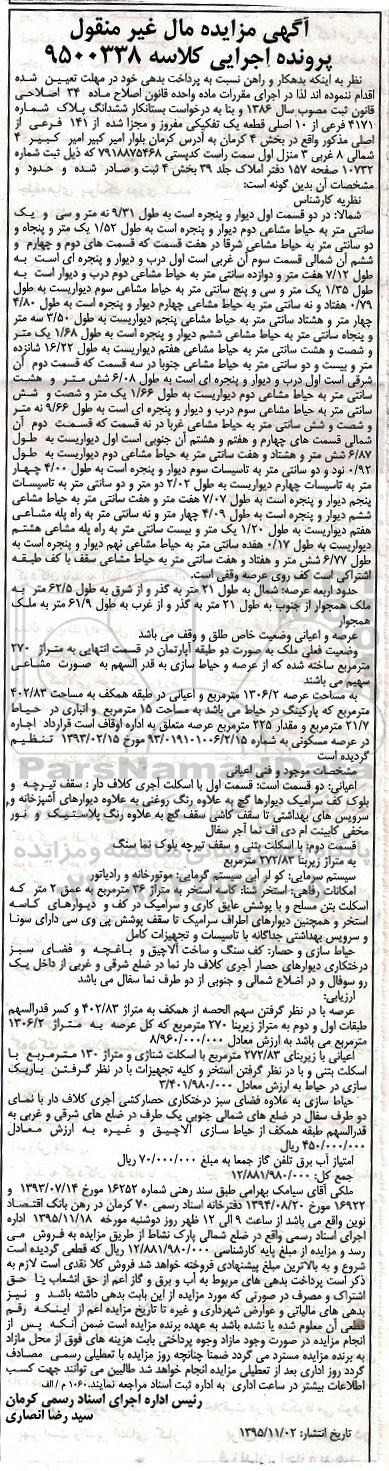 آگهی مزایده مال غیر منقول
پرونده اجرایی کلاسه ۹۵۰۰۳۳۸
نظر به اینکه بدهکار و راهن نسبت به پرداخت بدهی خود در مهلت تعیین شده
اقدام ننموده اند لذا در اجرای مقررات ماده واحده قانون اصلاح ماده ۳۴ اصلاحی
قانون ثبت مصوب سال ۱۳۸۶ و بنا به درخواست بستانکار ششدانگ پلاک شماره
۴۱۷۱ فرعی از ۱۰ اصلی قطعه یک تفکیکی مفروز و مجزا شده از ۱۴۱ فرعی از
اصلی مذکور واقع در بخش ۴ کرمان به آدرس کرمان بلوار امیر کبیر امیر کبیر ۴
شمالی ۸ غربی ۳ منزل اول سمت راست کدپستی ۷۹۱۸۸۷۵۴۶۸ که ذیل ثبت شماره
۱۰۷۳۲ صفحه ۱۵۷ دفتر املاک جلد ۳۹ بخش ۴ ثبت و صادر شده و حدود و
مشخصات آن بدین گونه است:
نظریه کارشناس
شمالا: در دو قسمت اول دیوار و پنجره است به طول ۹/۳۱ نه متر و سی و یک
سانتی متر به حیاط مشاعی دوم دیوار و پنجره است به طول ۱/۵۲ یک متر و پنجاه و
دو سانتی متر به حیاط مشاعی شرقا در هفت قسمت که قسمت های دوم و چهارم و
ششم آن شمالی قسمت سوم آن غربی است اول درب و دیوار و پنجره ای است به
طول ۷/۱۲ هفت متر و دوازده سانتی متر به حیاط مشاعی دوم درب و دیوار است به
طول ۱/۳۵ یک متر و سی و پنج سانتی متر به حیاط مشاعی سوم دیواریست به طول
۰/۷۹ هفتاد و نه سانتی متر به حیاط مشاعی چهارم دیوار و پنجره است به طول ۴/۸۰
چهار متر و هشتاد سانتی متر به حیاط مشاعی پنجم دیواریست به طول ۳/۵۰ سه متر
و پنجاه سانتی متر به حیاط مشاعی ششم دیوار و پنجره است به طول ۱/۶۸ یک متر
و شصت و هشت سانتی متر به حیاط مشاعی هفتم دیواریست به طول ۱۶/۲۲ شانزده
متر و بیست و دو سانتی متر به حیاط مشاعی جنوبا در سه قسمت که قسمت دوم آن
شرقی است اول درب و دیوار و پنجره ای است به طول ۶/۰۸ شش متر و هشت
سانتی متر به حیاط مشاعی دوم دیواریست به طول ۱/۶۶ یک متر و شصت و شش
سانتی متر به حیاط مشاعی سوم درب و دیوار و پنجره ای است به طول ۹/۶۶ نه متر
و شصت و شش سانتی متر به حیاط مشاعی غربا در نه قسمت که قسمت دوم آن
شمالی قسمت های چهارم و هفتم و هشتم آن جنوبی است اول دیواریست به طول
۶/۸۷ شش متر و هشتاد و هفت سانتی متر به حیاط مشاعی دوم دیواریست به طول
۰/۹۲ نود و دو سانتی متر به تاسیسات سوم دیوار و پنجره است به طول ۴/۰۰ چهار
متر به تاسیسات چهارم دیواریست به طول ۲/۰۲ دو متر و دو سانتی متر به تاسیسات
پنجم دیوار و پنجره است به طول ۷/۰۷ هفت متر و هفت سانتی متر به حیاط مشاعی
ششم دیوار و پنجره است به طول ۴/۰۹ چهار متر و نه سانتی متر به راه پله مشاعی
هفتم دیواریست به طول ۱/۲۰ یک متر و بیست سانتی متر به راه پله مشاعی هشتم
دیواریست به طول ۰/۱۷ هفده سانتی متر به حیاط مشاعی نهم دیوار و پنجره است به
طول ۶/۷۷ شش متر و هفتاد و هفت سانتی متر به حیاط مشاعی سقف با کف طبقه
اشتراکی است کف روی عرصه وقفی است.
حدود اربعه عرصه: شمال به طول ۲۱ متر به گذر و از شرق به طول ۶۲/۵ متر به
ملک همجوار از جنوب به طول ۲۱ متر به گذر و از غرب به طول ۶۱/۹ متر به ملک
همجوار
عرصه و اعیانی وضعیت خاص طلق و وقف می باشد
وضعیت فعلی ملک به صورت دو طبقه آپارتمان در قسمت انتهایی به متراژ ۲۷۰
مترمربع ساخته شده که از عرصه و حیاط سازی به قدر السهم به صورت مشاعی
سهیم می باشند
به مساحت عرصه ۱۳۰۶/۲ مترمربع و اعیانی در طبقه همکف به مساحت ۴۰۲/۸۳
مترمربع که پارکینگ در حیاط می باشد به مساحت ۱۵ مترمربع و انباری در حیاط
۲۱/۷ مترمربع و مقدار ۲۲۵ مترمربع عرصه متعلق به اداره اوقاف است قرارداد اجاره
در عرصه مسکونی به شماره ۹۳/۰۱۹۱-۱۰۰۶/۲/۱۵ مورخ ۱۳۹۳/۰۲/۱۵ تنظیم
گردیده است
مشخصات موجود و فنی اعیانی
اعیانی: دو قسمت است: قسمت اول با اسکلت آجری کلاف دار : سقف تیرچه و
بلوک کف سرامیک دیوارها گچ به علاوه رنگ روغنی به علاوه دیوارهای آشپزخانه و
سرویس های بهداشتی تا سقف کاشی سقف گچ به علاوه رنگ پلاستیک و نور
مخفی کابینت ام دی اف نما آجر سفال
قسمت دوم: با اسکلت بتنی و سقف تیرچه بلوک نما سنگ
به متراژ زیربنا ۲۷۲/۸۳ مترمربع
سیستم سرمایی: کولر آبی سیستم گرمایی: موتورخانه و رادیاتور
امکانات رفاهی: استخر شنا: کاسه استخر به متراژ ۳۶ مترمربع به عمق ۲ متر که
اسکلت بتن مسلح و با پوشش عایق کاری و سرامیک در کف و دیوارهای کاسه
استخر و همچنین دیوارهای اطراف سرامیک تا سقف پوشش پی وی سی دارای سونا
و سرویس بهداشتی جداگانه با تاسیسات و تجهیزات کامل
حیاط سازی و حصار: کف سنگ و ساخت آلاچیق و باغچه و فضای سبز
درختکاری دیوارهای حصار آجری کلاف دار نما در ضلع شرقی و غربی از داخل یک
رو سوفال و در اضلاع شمالی و جنوبی از دو طرف نما سفال می باشد
ارزیابی:
عرصه با در نظر گرفتن سهم الحصه از همکف به متراژ ۴۰۲/۸۳ و کسر قدرالسهم
طبقات اول و دوم به متراژ زیربنا ۲۷۰ مترمربع که کل عرصه به متراژ ۱۳۰۶/۲
مترمربع می باشد به ارزش معادل ۸/۹۶۰/۰۰۰/۰۰۰
اعیانی با زیربنای ۲۷۲/۸۳ مترمربع با اسکلت شناژی و متراژ ۱۳۰ مترمربع با
اسکلت بتنی و با در نظر گرفتن استخر و کلیه تجهیزات با در نظر گرفتن باریک
سازی در حیاط به ارزش معادل ۳/۴۰۱/۹۸۰/۰۰۰
حیاط سازی به علاوه فضای سبز درختکاری حصارکشی آجری کلاف دار با نمای
دو طرف سفال در ضلع های شمالی جنوبی یک طرف در ضلع های شرقی و غربی به
قدرالسهم طبقه همکف از حیاط سازی آلاچیق و غیره به ارزش معادل
۴۵۰/۰۰۰/۰۰۰ ریال
امتیاز آب برق تلفن گاز جمعا به مبلغ ۷۰/۰۰۰/۰۰۰ ریال
جمع کل: ۱۲/۸۸۱/۹۸۰/۰۰۰
ملکی آقای سیامک بهرامی طبق سند رهنی شماره ۱۶۲۵۲ مورخ ۱۳۹۳/۰۷/۱۴ و
۱۶۹۲۲ مورخ ۱۳۹۴/۰۸/۲۰ دفترخانه اسناد رسمی ۷۰ کرمان در رهن بانک اقتصاد
نوین واقع می باشد از ساعت ۹ الی ۱۲ ظهر روز دوشنبه مورخه ۱۳۹۵/۱۱/۱۸ اداره
اجرای اسناد رسمی واقع در ضلع شمالی پارک نشاط از طریق مزایده به فروش می
رسد و مزایده از مبلغ پایه کارشناسی ۱۲/۸۸۱/۹۸۰/۰۰۰ ریال که قطعی گردیده است
شروع و به بالاترین مبلغ پیشنهادی فروخته خواهد شد فروش کلا نقدی است لازم به
ذکر است پرداخت بدهی های مربوط به آب و برق و گاز اعم از حق انشعاب یا حق
اشتراک و مصرف در صورتی که مورد مزایده از این بابت بدهی داشته باشد و نیز
بدهی های مالیاتی و عوارض شهرداری و غیره تا تاریخ مزایده اعم از اینکه رقم
قطعی آن معلوم شده یا نشده باشد به عهده برنده مزایده است ضمن آنکه پس از
انجام مزایده در صورت وجود مازاد وجوه پرداختی بابت هزینه های فوق از محل مازاد
به برنده مزایده مسترد می گردد ضمنا چنانچه روز مزایده با تعطیلی رسمی مصادف
گردد روز اداری بعد از تعطیلی مزایده انجام خواهد شد طالبین می توانند جهت کسب
اطلاعات بیشتر در ساعت اداری به اداره ثبت اسناد مراجعه نمایند.۱۰۶۰ م / الف
رئیس اداره اجرای اسناد رسمی کرمان
سید رضا انصاری
تاریخ انتشار: ۱۳۹۵/۱۱/۰۲